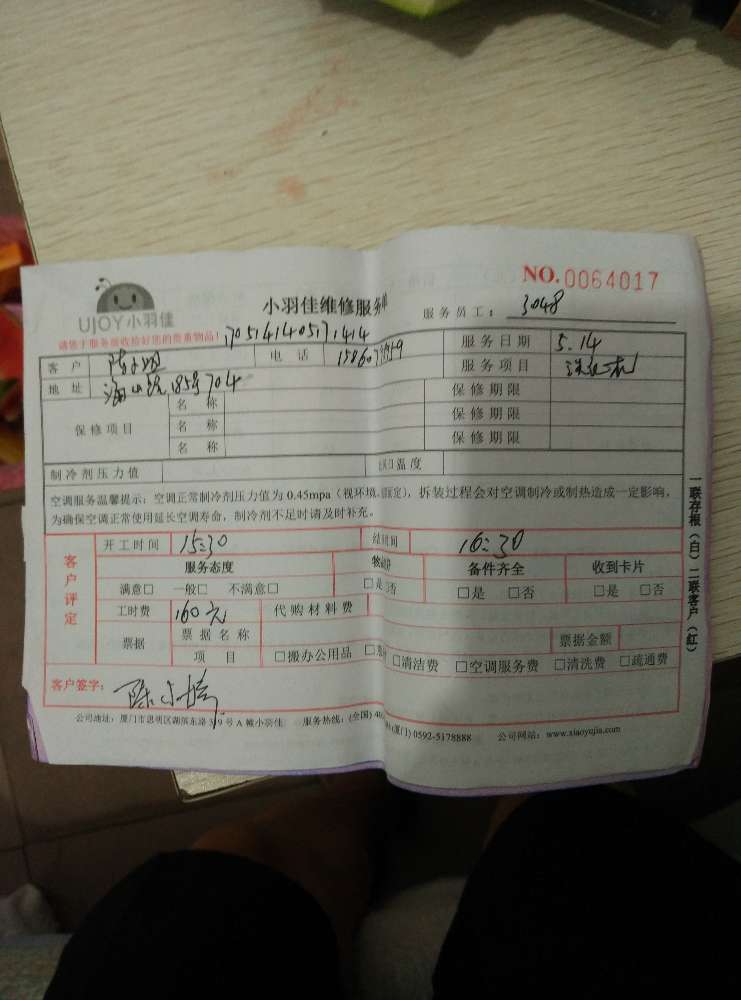 NO.0064017
UJOY小羽佳
小羽佳维修服务单
服务员工: 3048
请您于服务前收捡好您的贵重物品! 170514140517 1414
客户 电话 服务日期 5.14
地址 185号704 服务项目 洗衣机
保修项目 名称 保修期限
名称 保修期限
名称 保修期限
制冷剂压力值 出风口温度
空调服务温馨提示:空调正常制冷剂压力值为0.45mpa(视环境 而定),拆装过程会对空调制冷或制热造成一定影响,
为确保空调正常使用延长空调寿命,制冷剂不足时请及时补充。
客户评定
开工时间 15:30 结束时间 16:30
服务态度 备件齐全 收到卡片
满意□ 一般□ 不满意□ □是 □否 □是 □否 □是 □否
工时费 160元 代购材料费
票据 票据名称 票据金额
项目 □搬办公用品 □清洁费 □空调服务费 □清洗费 □疏通费
客户签字:
公司地址:厦门市思明区湖滨东路 号A幢小羽佳 服务热线:(全国)40 (厦门)0592-5178888 公司网站:www.xiaoyujia.com
一联存根(白)二联客户(红)